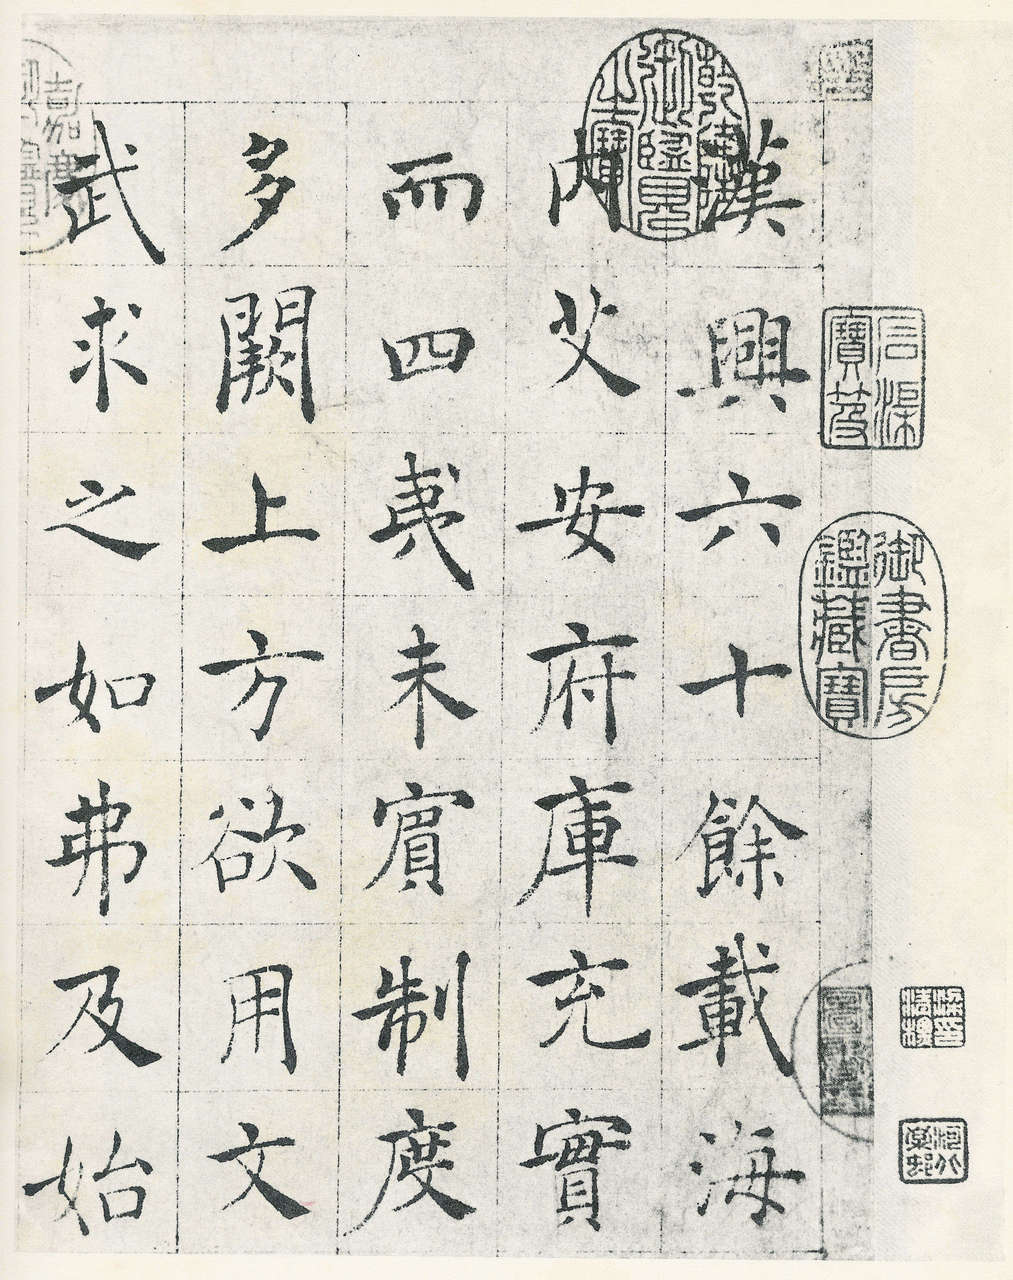 漢興六十餘載海
內艾安府庫充實
而四夷未賓制度
多闕上方欲用文
武求之如弗及始
乾隆御覽之寶
石渠寶笈
御書房鑑藏寶
嘉慶